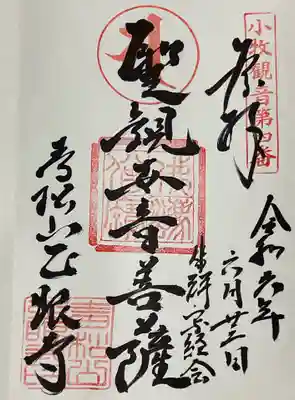 小牧観音第四番
奉拝
令和六年
六月廿三日
聖観世音菩薩
写経会
青松山正眼寺